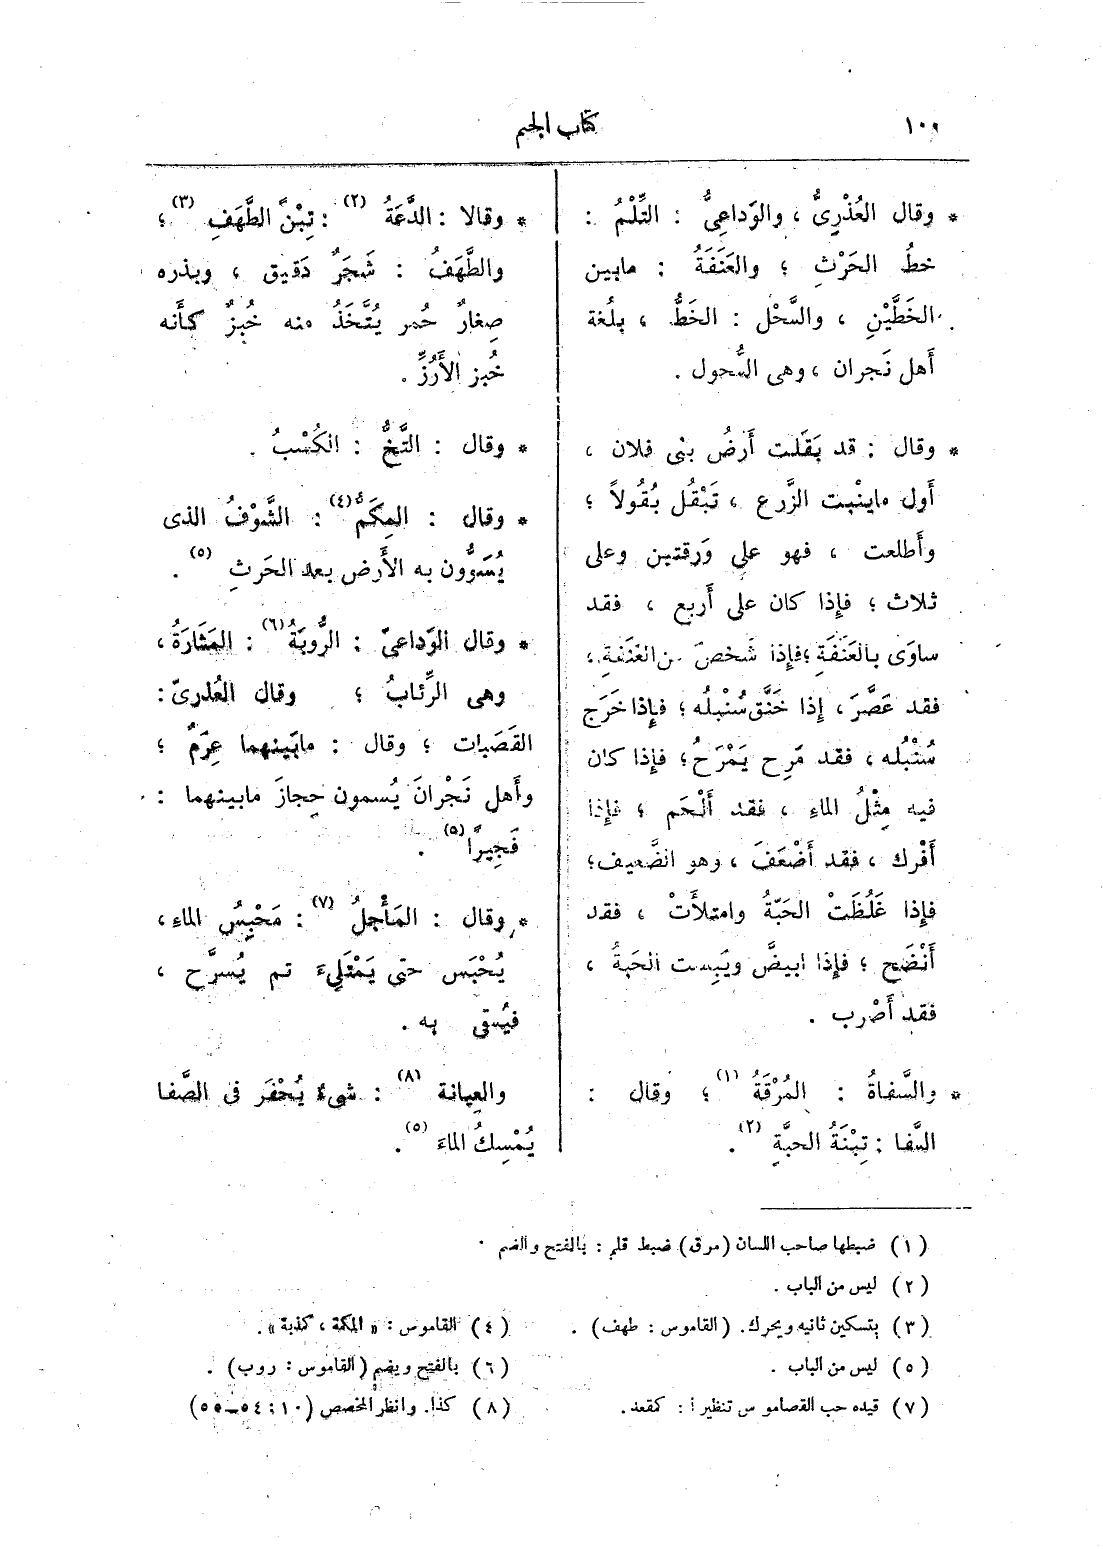 كتاب الجيم
* وقال العُذْرِىُّ ، والوَداعِىُّ : التِّلْمُ :
خطُ الحَرْثِ ؛ والعَنَفَةُ : مابين
الخَطَّيْنِ ، والسَّحْل : الخَطُّ ، بلغة
أهل نَجران ، وهى السُّحول .
* وقال : قد بَقَلت أَرضُ بنى فلان ،
أَول ماينْبت الزَّرع ، تَبْقُل بُقُولاً ؛
وأَطلعت ، فهو على وَرقتين وعلى
ثلاث ؛ فإِذا كان على أَربع ، فقد
ساوَى بالعَنَفَةِ ؛ فإِذا شَخصَ من العَنَفَةِ ،
فقد عَصَّرَ ، إِذا خَنَّق سُنْبلُه ؛ فإِذا خَرَج
سُنْبُله ، فقد مَرِح يَمْرَحُ ؛ فإِذا كان
فيه مِثْلُ الماءِ ، فقد أَلْحَم ؛ فإِذا
أَفْرك ، فقد أَضْعَفَ ، وهو الضَّعيف ؛
فإِذا غَلُظَتْ الحَبّةُ وامتلأَتْ ، فقد
أَنْضَح ؛ فإِذا ابيضَّ ويَبِست الحَبةُ ،
فقد أَصْرب .
* والسَّفاةُ : المُرْقَةُ (١) ؛ وقال :
السَّفا : تِبْنَةُ الحبَّةِ (٢) .
* وقالا : الدَّعَةُ (٢) : تِبْنُ الطَّهَفِ (٣) ؛
والطَّهَفُ : شَجَرٌ دَقيق ، وبذره
صِغارٌ حُمر يُتَّخَذُ منه خُبزٌ كأَنه
خُبز الأَرُزِّ .
* وقال : التَّخُّ : الكُسْبُ .
* وقال : المِكَمُّ (٤) : الشَّوْفُ الذى
يُسَوُّون به الأَرض بعد الحَرثِ (٥) .
* وقال الوَداعىّ : الرُّوبَةُ (٦) : المَثَارَةُ ،
وهى الرِّئابُ ؛ وقال العُذرىّ :
القَصَبات ؛ وقال : مابَينهما عِرَمٌ ؛
وأَهل نَجْرانَ يُسمون حِجازَ مابينهما :
فَجِيرًا (٥) .
* وقال : المَأْجلُ (٧) : مَحْبِسُ الماءِ ،
يُحْبَس حتى يَمْتَلِىءَ ثم يُسرَّح ،
فيُسقى به .
والعِيانة (٨) : شىءٌ يُحْفَر فى الصَّفا
يُمْسِكُ الماءَ (٥) .
(١) ضبطها صاحب اللسان (مرق) ضبط قلم : بالفتح والضم .
(٢) ليس من الباب .
(٣) بتسكين ثانيه ويحرك. (القاموس : طهف) .
(٤) القاموس : « المكمة ، كذبة » .
(٥) ليس من الباب .
(٦) بالفتح ويضم (القاموس : روب) .
(٧) قيده تنظيرا : كمقعد .
(٨) كذا. وانظر المخصص (١٠ : ٥٤ــ٥٥)